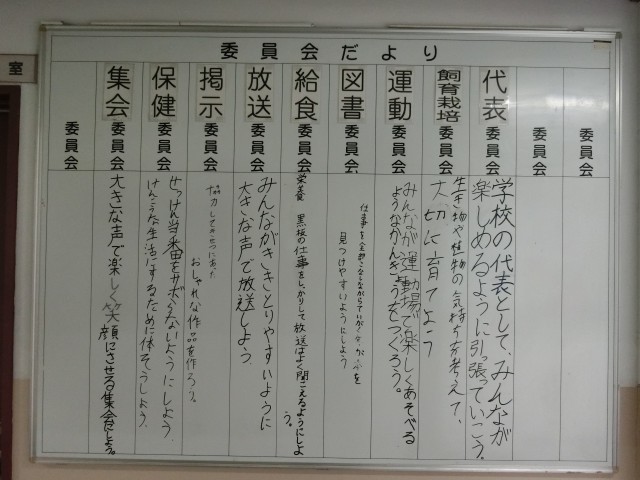 室
委員会だより
委員会
委員会
代表委員会
学校の代表として、みんなが
楽しめるように引っ張っていこう。
飼育栽培委員会
生き物や植物の気持ちを考えて、
大切に育てよう
運動委員会
みんなが運動場で楽しくあそべる
ようなかんきょうをつくろう。
図書委員会
仕事を
見つけやすいようにしよう
給食委員会
栄養 黒板の仕事をしっかりして放送はよく聞こえるようにしよ
う。
放送委員会
みんながききとりやすいように
大きな声で放送しよう。
掲示委員会
協力して
おしゃれな作品を作ろう。
保健委員会
せっけん当番をサボらないようにしよう。
けんこうな生活にするために体そうしよう。
集会委員会
大きな声で楽しく笑顔にさせる集会にしよう。
委員会